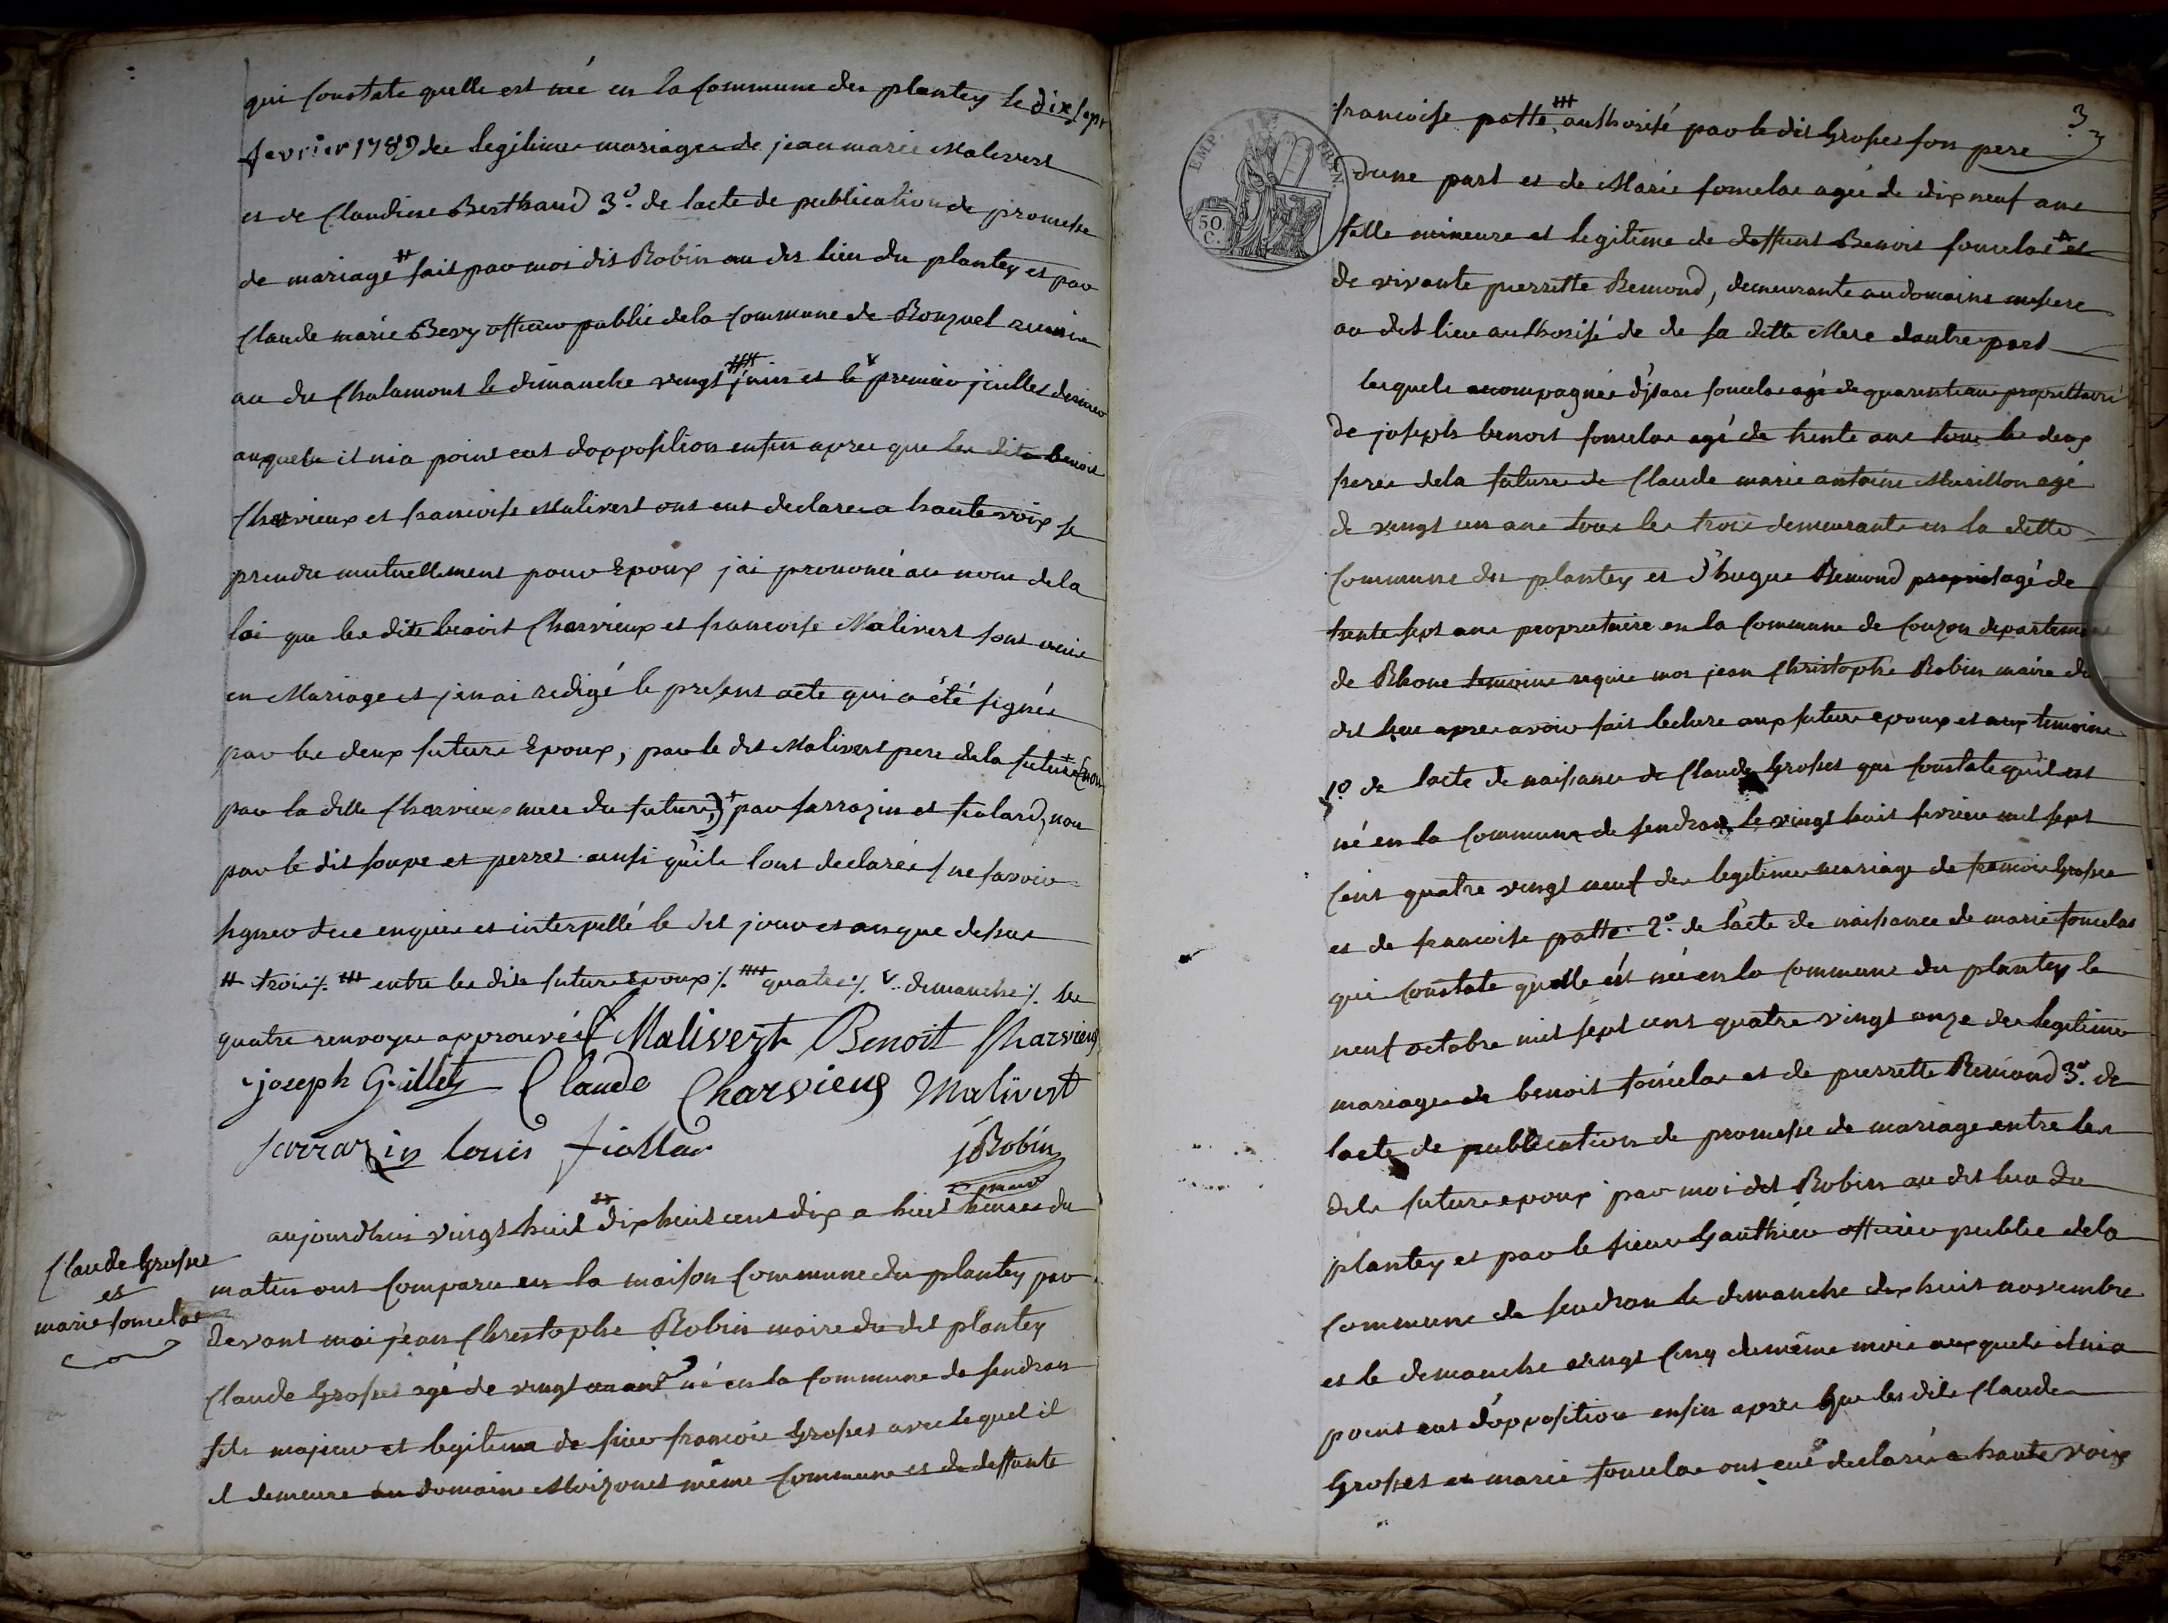 qui constate quelle est née en la commune du plantey le dix sept
fevrier 1789 de legitime mariage de jean marie Malivert
et de Claudine Berthaud 3.o de lacte de publication de promesse
de mariage # fait par moi dit Robin au dit lieu du plantey et par
Claude marie Bevy officier public dela commune de Ronzuel
au de Chalamont le dimanche vingt juin et le v premier juillet dernier
auquels il nia point eut dopposition enfin apres que les dits benoit
Charvieux et francoise Malivert ont eut declarer a haute voix se
prendre mutuellement pour Epoux jai prononcé au nom dela
loi que les dits benoit Charvieux et francoise Malivert sont unis
en Mariage et jenai redigé le present acte qui a été signés
par les deux future Epoux, par le dit Malivert pere dela future (non
par la ditte Charvieux mere du future,) + par sarrazin et fialard, non
par le dit soupe et perret ainsi quils lont declarés ne savoir
signer de ce enquis et interpellé le dit jour et an que dessus
# trois ·/. ### entre les dits future Epoux ·/. #### quatre ·/. v. dimanche ·/. les
quatre renvoye approuvés Malivert Benoit Charvieux
joseph Guillet Claude Charvieux Malivert
sarrazin louis fiallar JC Robin
maire
aujourdhui vingt huit # dix huit cent dix a huit heures du
Claude Grosset
et
marie fonselas
matin ont comparu en la maison commune du plantey par
devant moi jean Christophe Robin maire du dit plantey
Claude Grosset agé de vingt un ans né en la commune de sendran
fils majeur et legitime de sieur francois Grosset avec lequel il
il demeure au domaine Moizonet même commune et de deffunte
3
francoise patte, ### authorisé par le dit Grosset son pere
dune part et de Marie fonselas agée de dix neuf ans
fille mineure et legitime de deffunt Benoit fonselas et
de vivante pierrette Remond, demeurante au domaine
au dit lieu authorisé de de sa ditte Mere dautre part
lequels accompagnés djsaac fonselas agé de quarante ans proprietaire
de joseph benoit fonselas agé de trente ans tous les deux
freres dela future de Claude marie antoine Murillon agé
de vingt un ans tous les trois demeurants en la ditte
commune du plantey et d'hugue Remond agé de
trente sept ans proprietaire en la commune de Couzon departement
de Rhone temoins requis moi jean Christophe Robin maire du
dit lieu apres avoir fait lecture aux future epoux et aux temoins
1.o de lacte de naissance de Claude Grosset qui constate quil est
né en la commune de sendran le vingt huit fevrier mil sept
cent quatre vingt neuf de legitime mariage de francois Grosset
et de francoise patte. 2.o de l'acte de naissance de marie fonselas
qui constate quelle est née en la commune du plantey le
neuf octobre mil sept cent quatre vingt onze de legitime
mariage de benoit fonselas et de pierrette Remond 3.o de
lacte de publication de promesse de mariage entre les
dits future epoux par moi dit Robin au dit lieu du
plantey et par le sieur Gauthier officier public dela
commune de sendran le dimanche dix huit novembre
et le dimanche vingt cinq du même mois auxquels il nia
point eut d'opposition enfin apres que les dits Claude
Grosset et marie fonselas ont eut declarés a haute voix
EMP. FRAN.
50.
C.